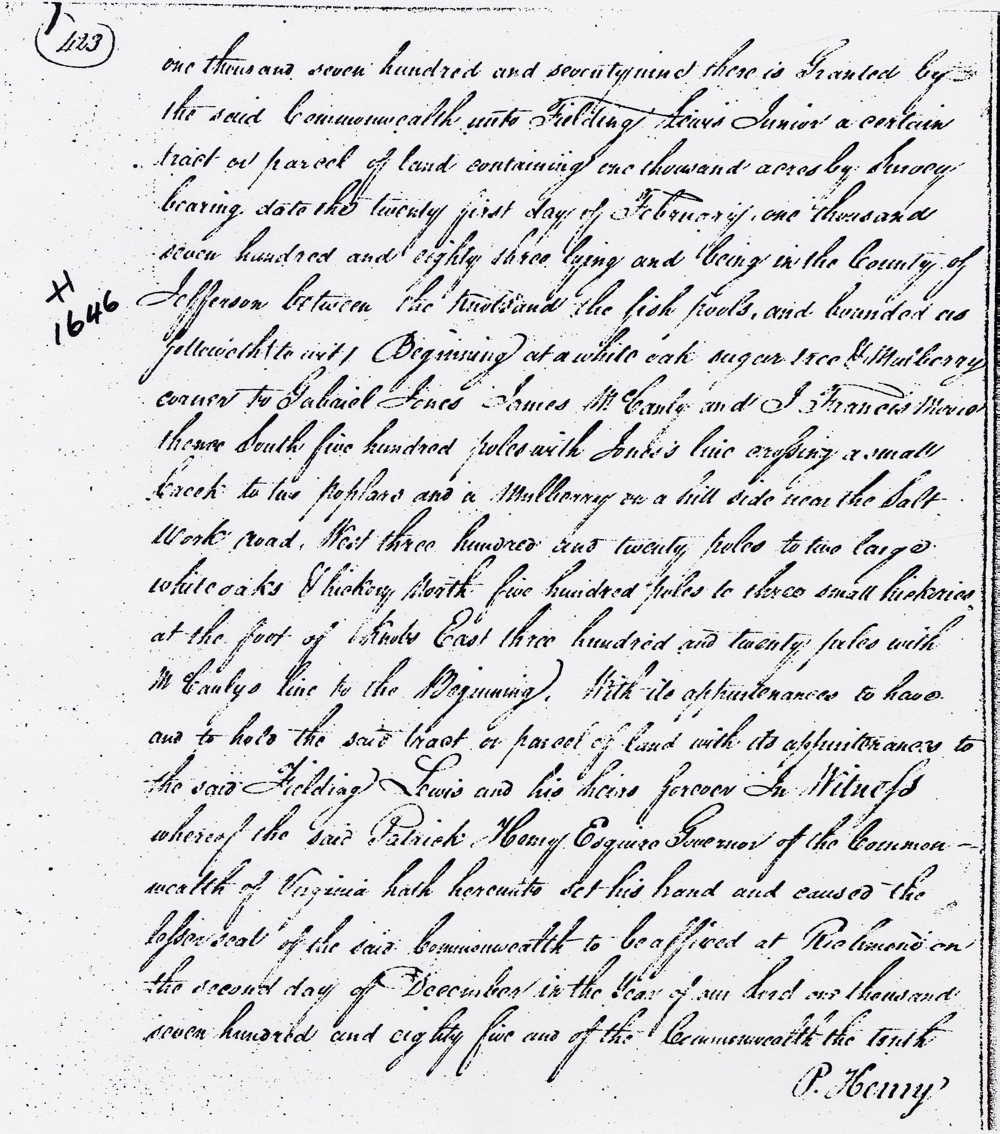 423
one thousand seven hundred and seventy nine there is Granted by
the said Commonwealth unto Fielding Lewis Junior a certain
tract or parcel of land containing one thousand acres by Survey
bearing date the twenty first day of February one thousand
seven hundred and eighty three lying and being in the County of
Jefferson between the Knobs and the fish pools, and bounded as
H
1646
followeth to wit, Beginning at a white oak sugar tree & Mulberry
corner to Gabriel Jones James McCauly and J Francis Moore
thence South five hundred poles with Jones's line crossing a small
Creek to two poplars and a Mulberry on a hill side near the Salt
Work road, West three hundred and twenty poles to two large
white oaks & hickory North five hundred poles to three small hickories
at the foot of Knobs East three hundred and twenty poles with
McCaulys line to the Beginning. With its appurtenances to have
and to hold the said tract or parcel of land with its appurtenances to
the said Fielding Lewis and his heirs forever In Witness
whereof the said Patrick Henry Esquire Governor of the Common-
wealth of Virginia hath hereunto set his hand and caused the
lesser seal of the said Commonwealth to be affixed at Richmond on
the second day of December in the Year of our Lord one thousand
seven hundred and eighty five and of the Commonwealth the tenth
P. Henry